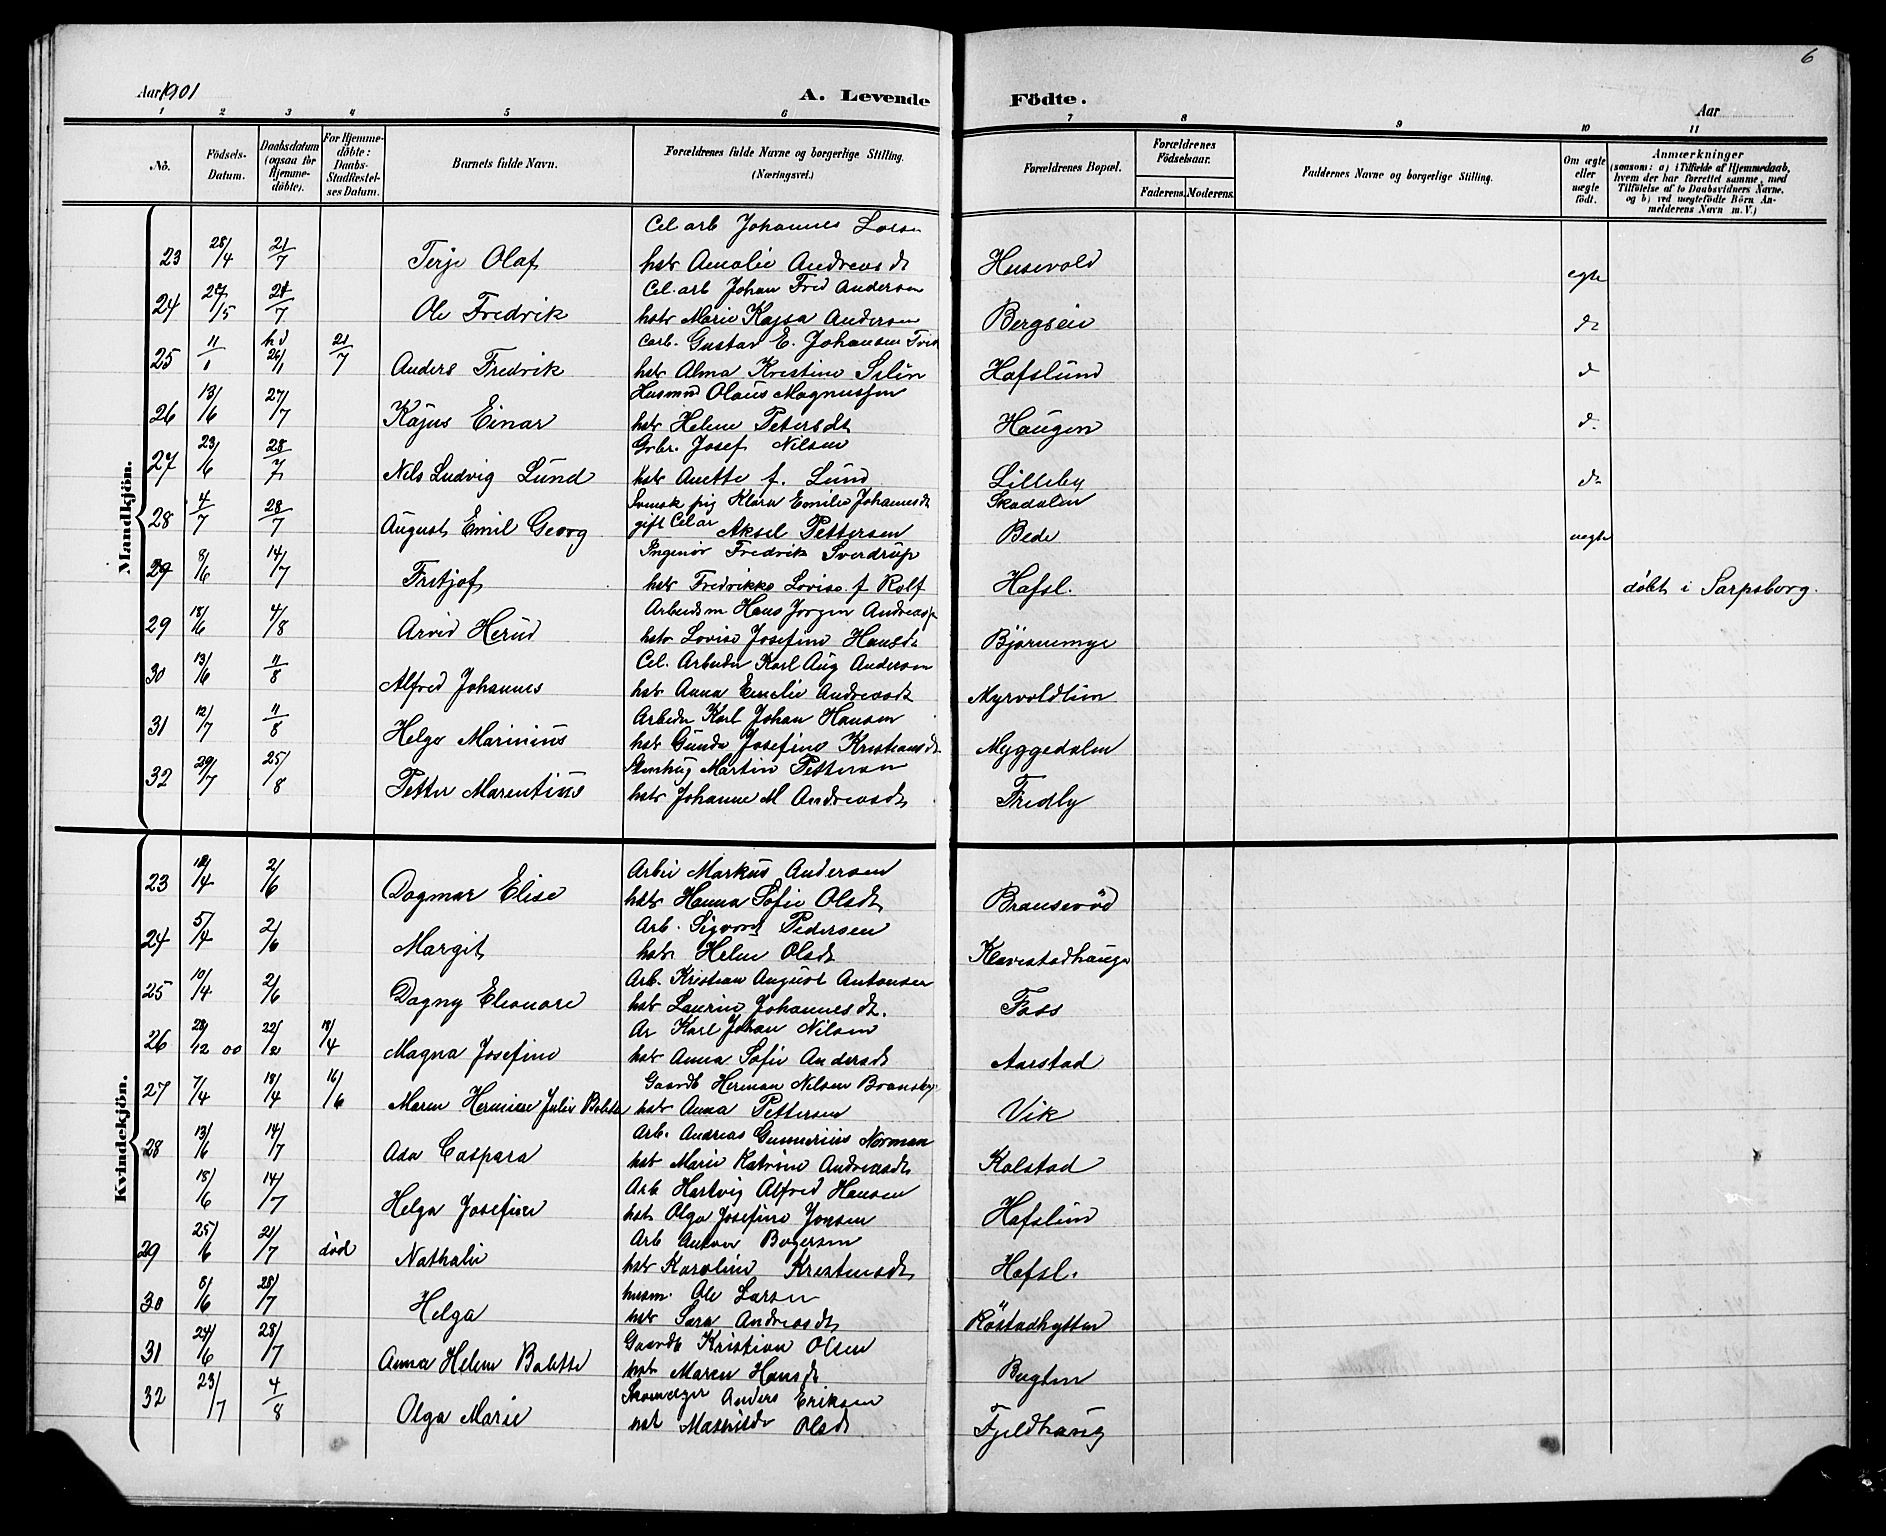 6
Aar 1901
A. Levende Födte.
Aar
1 2 3 4 5 6 7 8 9 10 11
No.
Födsels-Datum.
Daabsdatum (ogsaa for Hjemmedöbte).
For Hjemmedöbte: Daabs-Stadfæstelses Datum.
Barnets fulde Navn.
Forældrenes fulde Navne og borgerlige Stilling. (Næringsvei.)
Forældrenes Bopæl.
Forældrenes Födselsaar.
Faderens. Moderens.
Faddernes Navne og borgerlige Stilling.
Om ægte eller uægte födt.
Anmærkninger (saasom: a) i Tilfælde af Hjemmedaab, hvem der har forrettet samme, med Tilföielse af to Daabsvidners Navne, og b) ved uægtefödte Börn Anmelderens Navn m. V.)
Mandkjön.
Cel arb Johannes
23 28/4 21/7 Terje Olaf hstr Amalie Andreasdt Husevold egte
Cel. arb Johan Fred Andersen
24 /5 21/7 Ole Fredrik hstr Marie Kajsa Andersen Bergseie do
Carb. Gustav E. Johansen
25 11/ hd 21/7 Anders Fredrik hstr Alma Kristine Hafslund do
Husmnd Olaus Magnussen
26 13/6 27/7 Kajus Einar hstr Helene Petersdt Haugen do
Grbr. Josef Nilsen
27 23/6 28/7 Nils Ludvig Lund hstr Anette f. Lund Lilleby do
Svensk pig Klara Emilie Johannesdt Skadalen
28 4/7 28/7 August Emil Georg gift Celar Aksel Pettersen Bede uegte
Ingeniør Fredrik Sverdrup
29 8/6 14/7 Fritjof hstr Fredrikke Lovise f. Rolf Hafsl. döbt i Sarpsborg.
Arbeidsm Hans Jorgen
29 18/6 4/8 Arvid Herud hstr Lovise Josefine Hansdt Bjørnemyr
Cel. Arbeider Karl Aug Andersen
30 13/6 11/8 Alfred Johannes hstr Anna Emelie Andreasdt Myrvoldlien
Arbeider Karl Johan Hansen
31 12/7 11/8 Helge Marinius hstr Gunda Josefine Kristiansdt Myggedalen
Stenhug Martin Petterson
32 29/7 25/8 Petter Marentius hstr Johanne M Andreasdt Fredly
Kvindekjön.
Arbei Markus Andersen
23 /4 2/6 Dagmar Elise hstr Hanna Sofie Olsdt Bransrød
Arb. Sigvard Pedersen
24 5/4 2/6 Margit hstr Helene Olsdt Klavestadhauge
Arb. Kristian August Antonsen
25 10/4 2/6 Dagny Eleonore hstr Laurine Johannesdt. Foss
Ar Karl Johan Nilsen
26 28/12 00 22/2 18/4 Magna Josefine hstr Anna Sofie Andersdt Aarstad
Gaardb Herman Nilsen Bransby
27 7/4 18/4 16/6 Maren Hermine Julie Bolette hstr Anna Pettersen Vik
Arb. Andreas Gunnerius Norman
28 13/6 14/7 Ada Caspara hstr Marie Katrine Andreasdt Kolstad
Arb Hartvig Alfred Hansen
18/6 14/7 Helga Josefine hstr Olga Josefine Jonsen Hafslun
Arb Anton Bøgersen
29 25/6 21/7 död Nathalie hstr Karoline Kristensdt Hafsl.
husm. Ole Larsen
30 8/6 28/7 Helga hstr Sara Andreasdt Röstadhytten
Gaardb Kristian Olsen
31 24/6 28/7 Anna Helene Bolette hstr Maren Hansdt Bugten
Skomager Anders Eriksen
32 23/7 4/8 Olga Marie hst Mathilde Olsdt Fjeldhaug